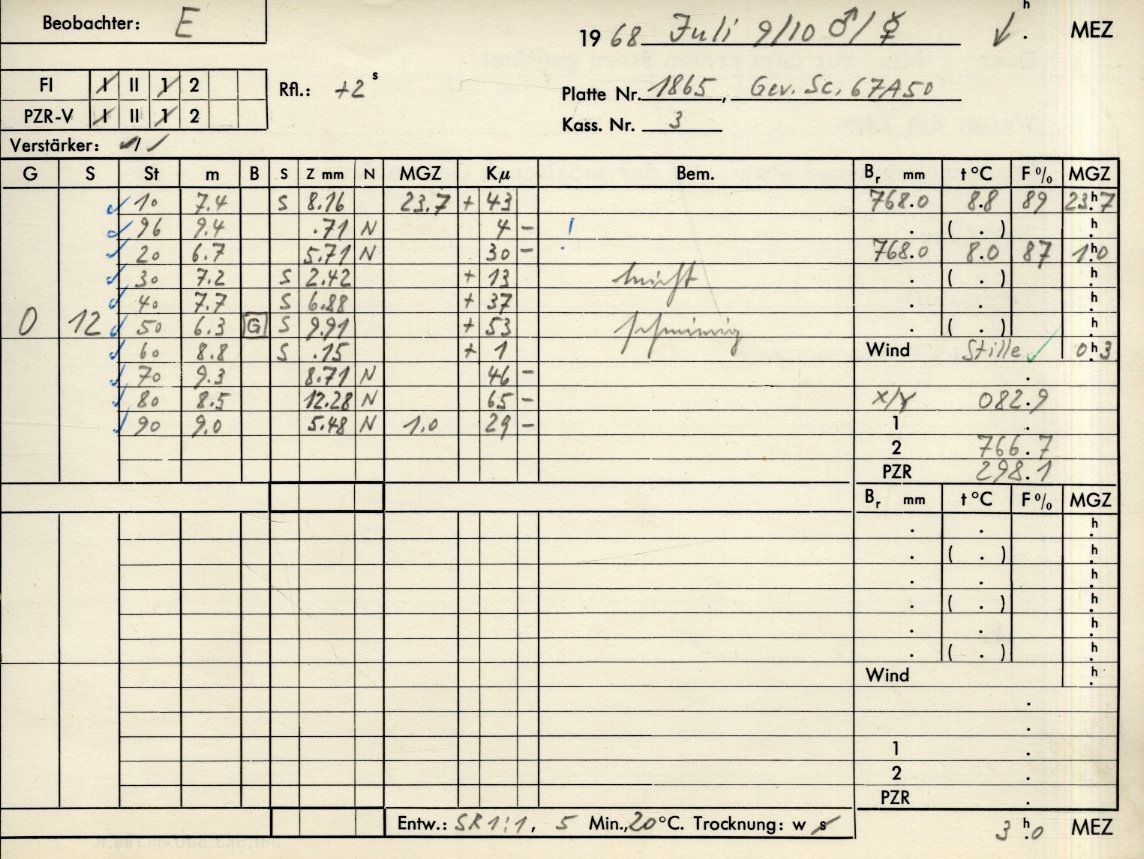 Beobachter: E
1968 Juli 9/10 ♂/☿ h . MEZ
FI I II 1 2 Rfl.: +2 s
Platte Nr. 1865, Gev. Sc. 67A50
PZR-V I II 1 2
Kass. Nr. 3
Verstärker: 1
G S St m B S Z mm N MGZ Kµ Bem. Br mm t °C F % MGZ
10 7.4 S 8.16 23.7 + 43 768.0 8.8 89 23h7
96 9.4 .71 N 4 - ! . ( . ) h
20 6.7 5.71 N 30 - 768.0 8.0 87 1h0
30 7.2 S 2.42 + 13 . ( . ) h
40 7.7 S 6.88 + 37 . . h
0 12 50 6.3 G S 9.91 + 53 . ( . ) h
60 8.8 S .15 + 1 Wind Stille ✓ 0h3
70 9.3 8.71 N 46 - .
80 8.5 12.28 N 65 - 082.9
90 9.0 5.48 N 1.0 29 - 1 .
2 766.7
PZR 298.1
Br mm t °C F % MGZ
. . h
. ( . ) h
. . h
. ( . ) h
. . h
. ( . ) h
Wind h
.
.
1 .
2 .
PZR .
Entw.: SR 1:1, 5 Min., 20 °C. Trocknung: w s
3 h.0 MEZ